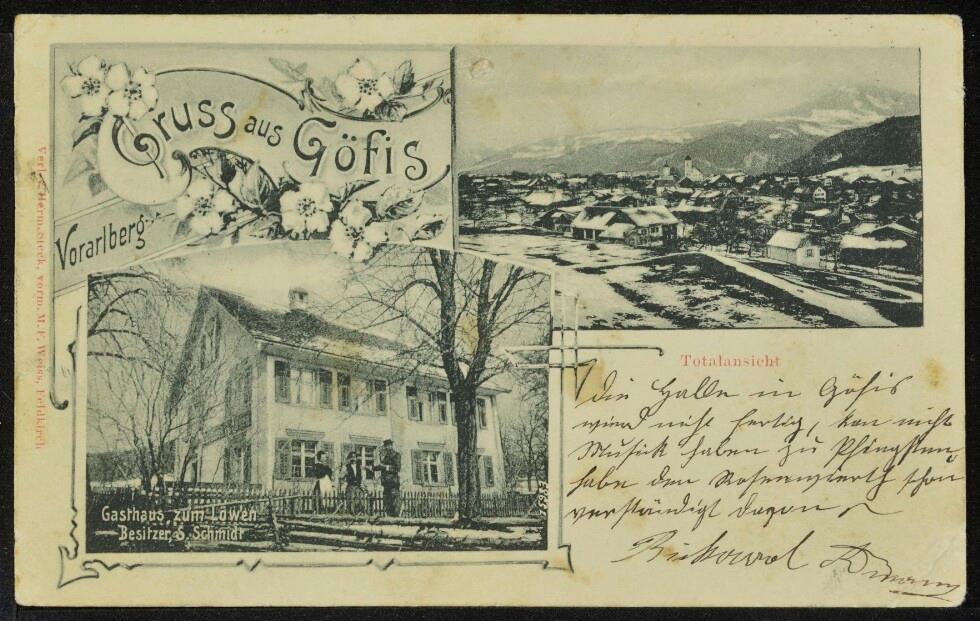 Gruss aus Göfis
Vorarlberg.
Verlag Herm. Steck, vorm. M. F. Weiss, Feldkirch
Gasthaus, zum Löwen
Besitzer, S. Schmidt
5943
Totalansicht
Die Halle in Göfis
wird nicht fertig, kan nicht
Musick haben zu Phingsten
habe den Rosenwierth schon
verständigt davon